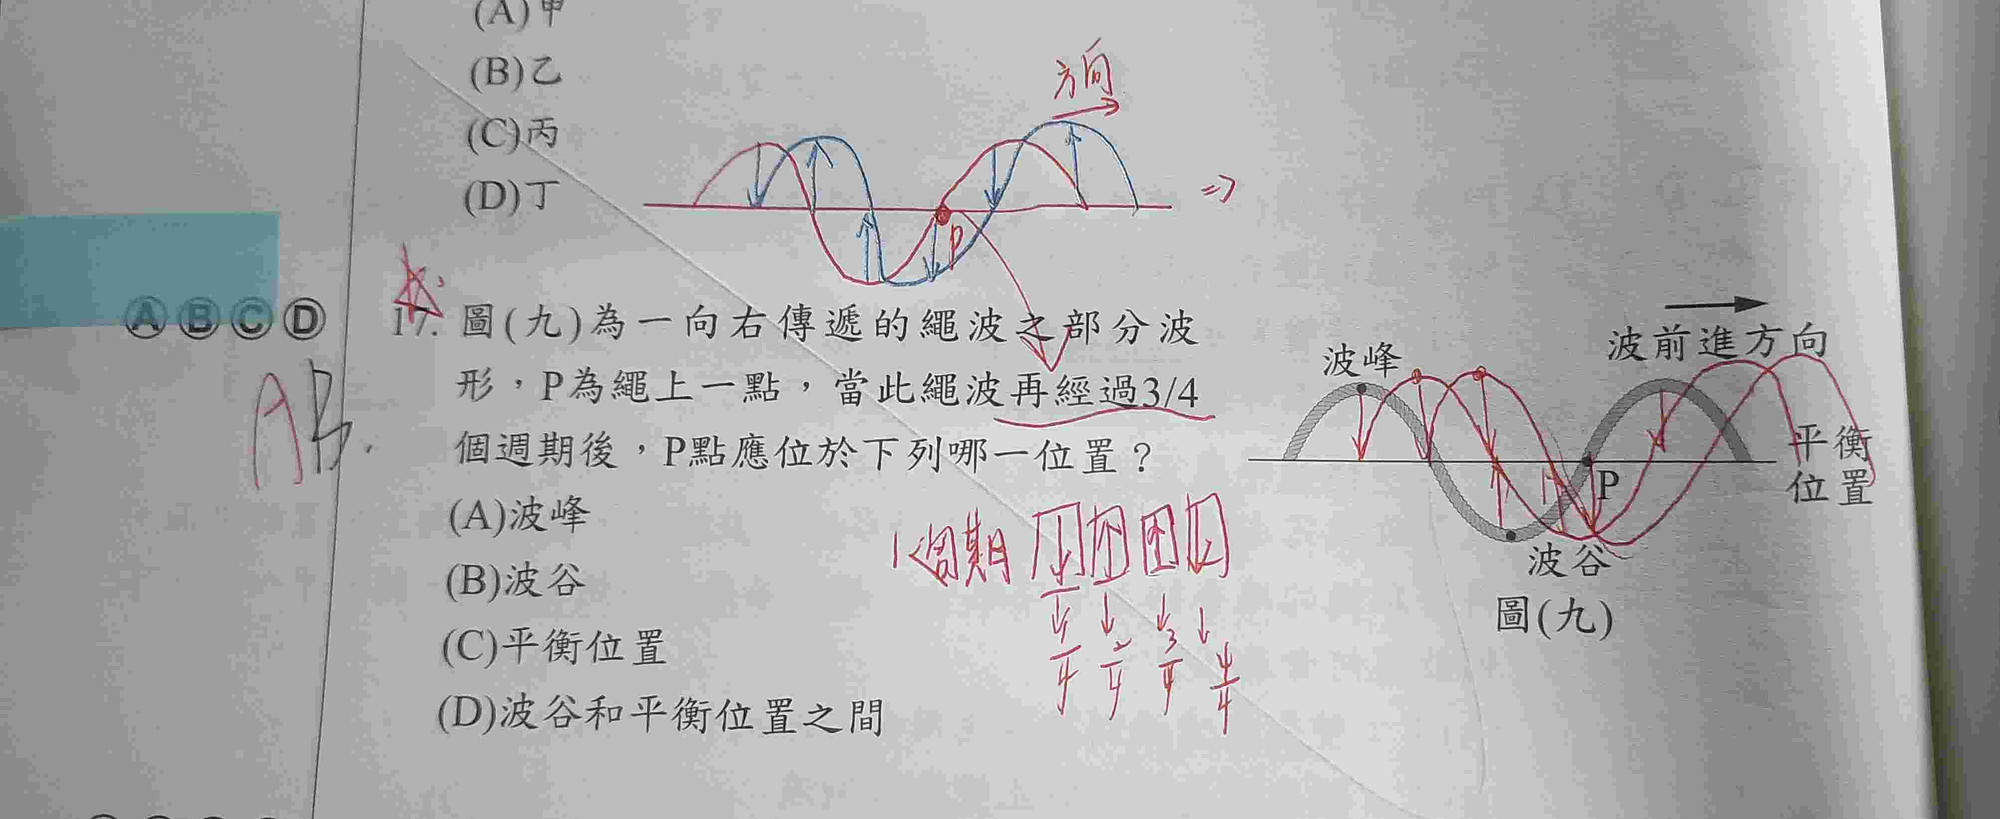 (A)甲
(B)乙
(C)丙
(D)丁
方向
P
⇒
ⒶⒷⒸⒹ
AB.
17. 圖(九)為一向右傳遞的繩波之部分波
形，P為繩上一點，當此繩波再經過3/4
個週期後，P點應位於下列哪一位置？
(A)波峰
(B)波谷
(C)平衡位置
(D)波谷和平衡位置之間
1週期
1/4 2/4 3/4 4/4
波前進方向
波峰
平衡
位置
P
波谷
圖(九)